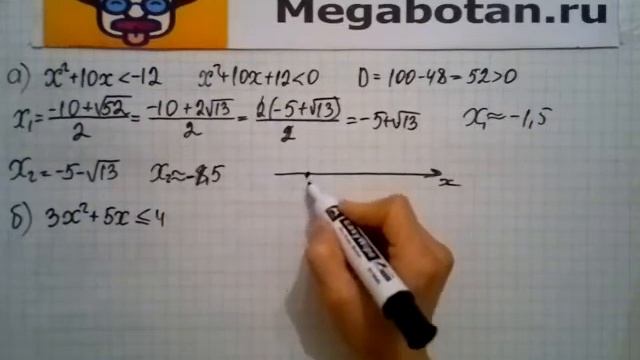 Megabotan.ru
а) x²+10x<-12 x²+10x+12<0 D=100-48=52>0
x₁=(-10+√52)/2=(-10+2√13)/2=2(-5+√13)/2=-5+√13 x₁≈-1,5
x₂=-5-√13 x₂≈-8,5
x
б) 3x²+5x≤4